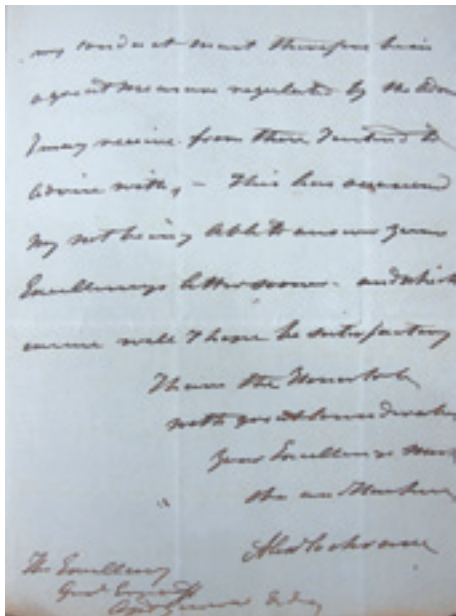 my conduct must therefore be in
a great measure regulated by the Advice
I may receive from those I intend to
Advise with, – This has occasioned
my not being Able to answer your
Excellencys letter sooner. and which
excuse will I hope be satisfactory
I have the Honor to be
with great
Your Excellencys Most
Obt and Humble
Alex Cochrane
His Excellency